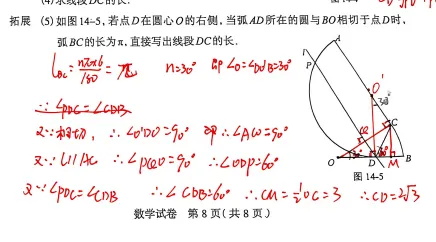 (4)求线段DC的长.
拓展 (5)如图14-5,若点D在圆心O的右侧,当弧AD所在的圆与BO相切于点D时,
弧BC的长为π,直接写出线段DC的长.
l_BC = nπ×6/180 = π n=30° 即∠O=∠DOB=30°
∵∠PDC=∠CDB
又∵相切, ∴∠O'DO=90° 即∠ACO=90°
又∵l//AC ∴∠PQO=90° ∴∠ODP=60°
又∵∠PDC=∠CDB ∴∠CDB=60° ∴CM=½OC=3 ∴CD=2√3
l
A
P
O'
30°
C
Q
O
30°
D
M
B
图14-5
数学试卷 第8页(共8页)